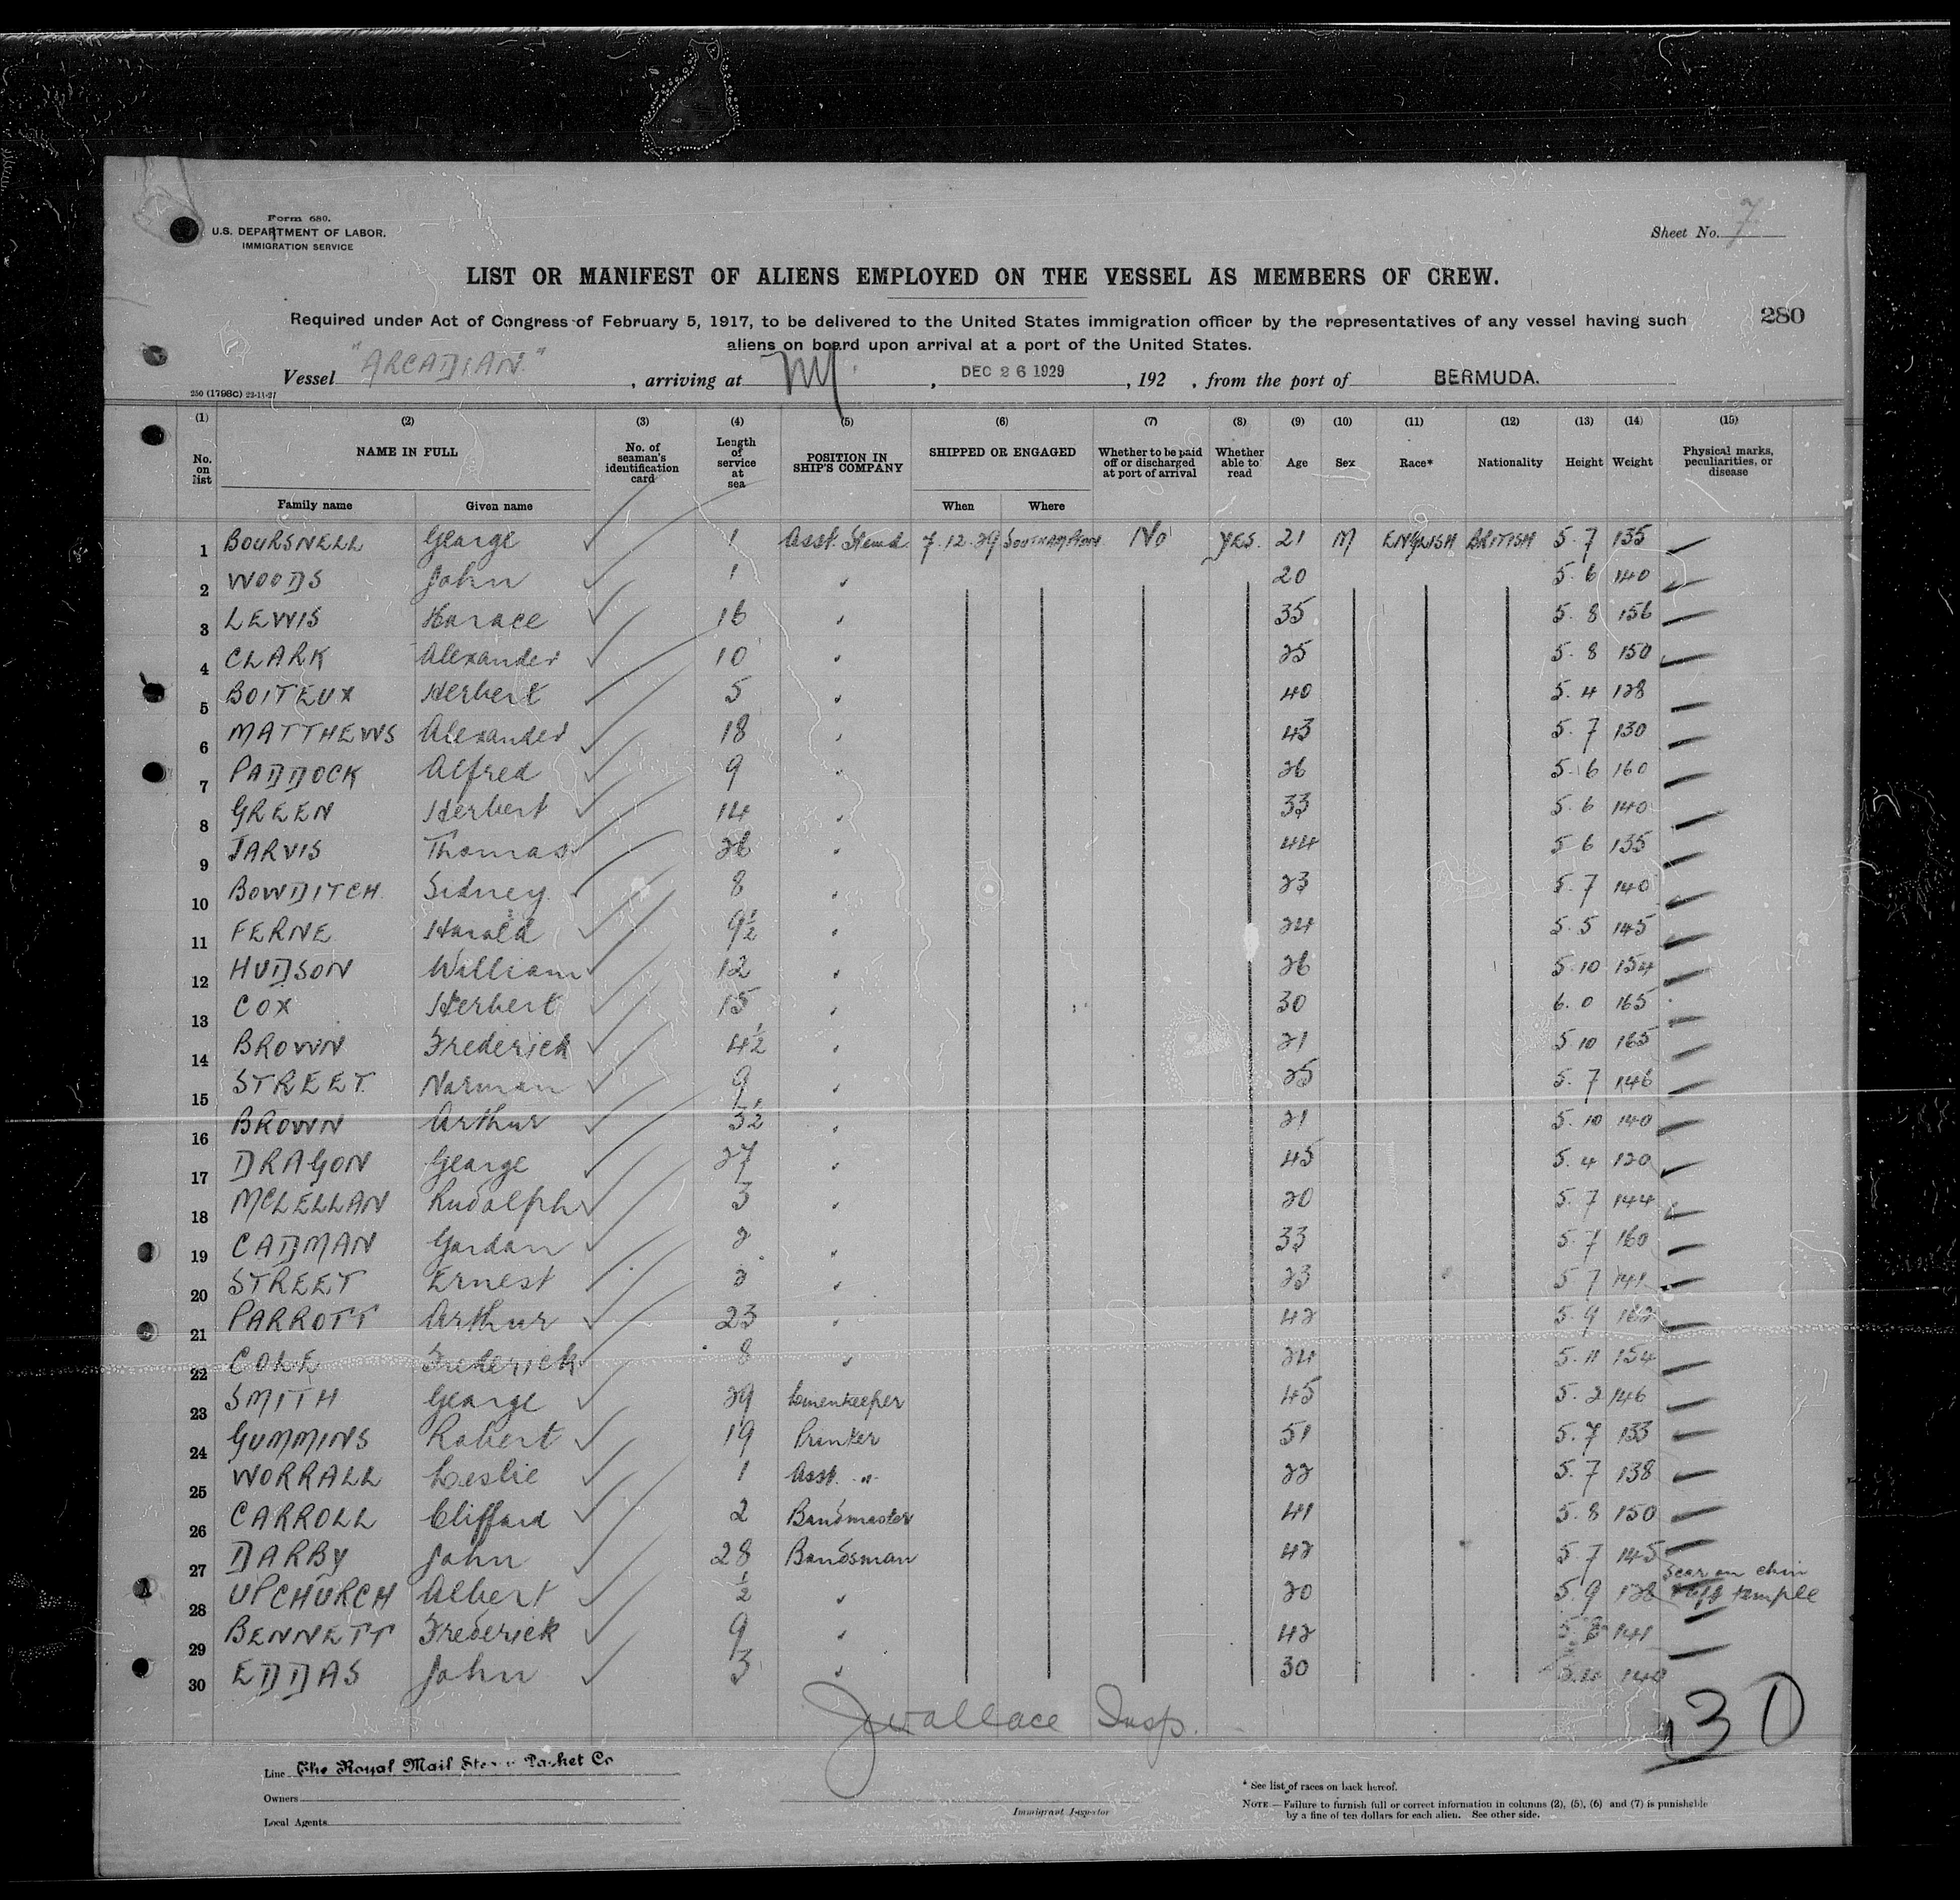 Form 680.
U.S. DEPARTMENT OF LABOR.
IMMIGRATION SERVICE
Sheet No. 7
LIST OR MANIFEST OF ALIENS EMPLOYED ON THE VESSEL AS MEMBERS OF CREW.
280
Required under Act of Congress of February 5, 1917, to be delivered to the United States immigration officer by the representatives of any vessel having such
aliens on board upon arrival at a port of the United States.
Vessel "ARCADIAN" , arriving at NY , DEC 26 1929 , 192 , from the port of BERMUDA.
250 (1798C) 22-11-27
(1) (2) (3) (4) (5) (6) (7) (8) (9) (10) (11) (12) (13) (14) (15)
No. on list NAME IN FULL No. of seaman's identification card Length of service at sea POSITION IN SHIP'S COMPANY SHIPPED OR ENGAGED Whether to be paid off or discharged at port of arrival Whether able to read Age Sex Race* Nationality Height Weight Physical marks, peculiarities, or disease
Family name Given name When Where
1 BOURSNELL George 1 Asst. Stewd. 7.12.29 SOUTHAMPTON No YES. 21 M ENGLISH BRITISH 5. 7 135
2 WOODS John 1 " 20 5. 6 140
3 LEWIS Horace 16 " 35 5. 8 156
4 CLARK Alexander 10 " 25 5. 8 150
5 BOITEUX Herbert 5 " 40 5. 4 128
6 MATTHEWS Alexander 18 " 43 5. 7 130
7 PADDOCK Alfred 9 " 26 5. 6 160
8 GREEN Herbert 14 " 33 5. 6 140
9 JARVIS Thomas 26 " 44 5 6 135
10 BOWDITCH Sidney 8 " 23 5. 7 140
11 FERNE Harold 9½ " 24 5. 5 145
12 HUDSON William 12 " 26 5. 10 154
13 COX Herbert 15 " 30 6. 0 165
14 BROWN Frederick 4½ " 21 5 10 165
15 STREET Norman 9 " 25 5. 7 146
16 BROWN Arthur 3½ " 21 5. 10 140
17 DRAGON George 27 " 45 5. 4 120
18 MCLELLAN Rudolph 3 " 20 5. 7 144
19 CADMAN Gordon 2 " 33 5. 7 160
20 STREET Ernest 2 " 23 5 7 141
21 PARROTT Arthur 23 " 42 5. 9 162
22 COLE Frederick 8 " 24 5. 11 154
23 SMITH George 29 Linenkeeper 45 5. 2 146
24 GUMMINS Robert 19 Printer 51 5. 7 133
25 WORRALL Leslie 1 Asst. " 22 5. 7 138
26 CARROLL Clifford 2 Bandmaster 41 5. 8 150
27 DARBY John 28 Bandsman 42 5. 7 145
Scar on chin
28 UPCHURCH Albert ½ " 20 5. 9 128 & left temple
29 BENNETT Frederick 9 " 42 5. 8 141
30 EDDAS John 3 " 30 5.10 140
30
JWallace Insp.
Line The Royal Mail Steam Packet Co
Owners
Local Agents
Immigrant Inspector
* See list of races on back hereof.
NOTE.—Failure to furnish full or correct information in columns (2), (5), (6) and (7) is punishable
by a fine of ten dollars for each alien. See other side.